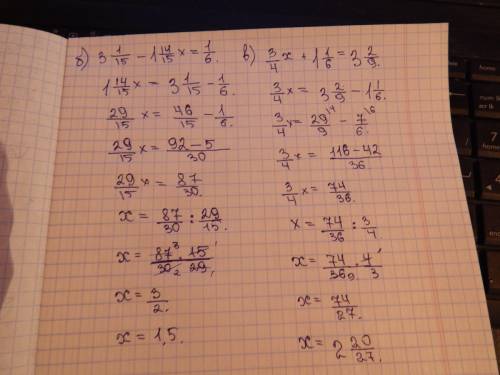 б) 3 1/15 - 1 14/15 x = 1/6.
1 14/15 x = 3 1/15 - 1/6.
29/15 x = 46/15 - 1/6.
29/15 x = 92-5/30
29/15 x = 87/30.
x = 87/30 : 29/15.
x = 87³ · 15¹/30₂ · 29₁
x = 3/2.
x = 1,5.
в) 3/4 x + 1 1/6 = 3 2/9.
3/4 x = 3 2/9 - 1 1/6.
3/4 x = 29/9 \4 - 7/6 \6
3/4 x = 116-42/36
3/4 x = 74/36.
x = 74/36 : 3/4
x = 74 · 4¹/36₉ · 3
x = 74/27.
x = 2 20/27.